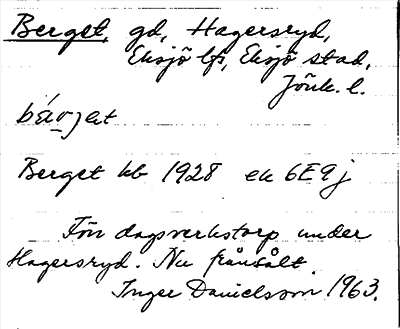 Berget, gd, Hagersryd,
Eksjö lfs, Eksjö stad,
Jönk. l.
bárjet
Berget kb 1928 ek 6E9j
Förr dagsverkstorp under
Hagersryd. Nu frånsålt.
Inger Danielsson 1963.